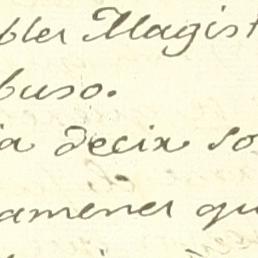 bles Magist
buso.
ia decir so
amenes qu